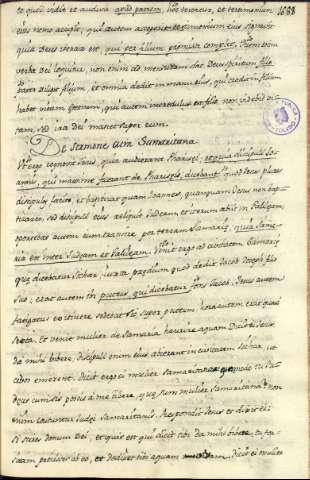 et quod vidit et audivit apud patrem, hoc testatur, et testimonium 1688
eius nemo accipit, qui autem accepit testimonium eius signavit
quia deus verax est, qui per illum promissa complet,
verba dei loquitur, non enim ad mensuram dat deus spiritum
pater diligit filium, et omnia dedit in manu eius, qui credit in filium
habet vitam eternam, qui autem incredulus est filio non videbit vi-
tam, sed ira dei manet super eum.
De sermone cum Samaritana
Ut ergo cognovit Jesus, quia audierunt Pharisei,
qui maxime de Phariseis, dicebant quod Jesus plures
discipulos facit, et baptizat quam Joannes, quanquam Jesus non bap-
tizaret, sed discipuli eius reliquit Judeam et iterum abiit in Galileam,
oportebat autem eum transire per terram Samariae, quae
est inter Judeam et Galileam. Venit ergo ad civitatem Samariae
quae dicebatur Sichar iuxta praedium quod dedit Jacob Joseph filio
suo, erat autem ibi puteus, qui dicebatur fons Jacob. Jesus autem
fatigatus ex itinere sedebat sic super puteum hora autem erat quasi
sexta. Et venit mulier de Samaria haurire aquam Dicit ei Jesus
da mihi bibere, discipuli enim eius abierant in civitatem Sichar, ut
cibos emerent. dicit ergo ei mulier Samaritana quomodo tu Iu-
deus cum sis potas à me bibere, quae sum mulier Samaritana? non
enim coutuntur Judei Samaritanis. Respondit Jesus et dixit ei:
si scires donum Dei, et quis est qui dicit tibi da mihi bibere, tu for-
sitam petiisses ab eo, et dedisset tibi aquam dicit ei mulier